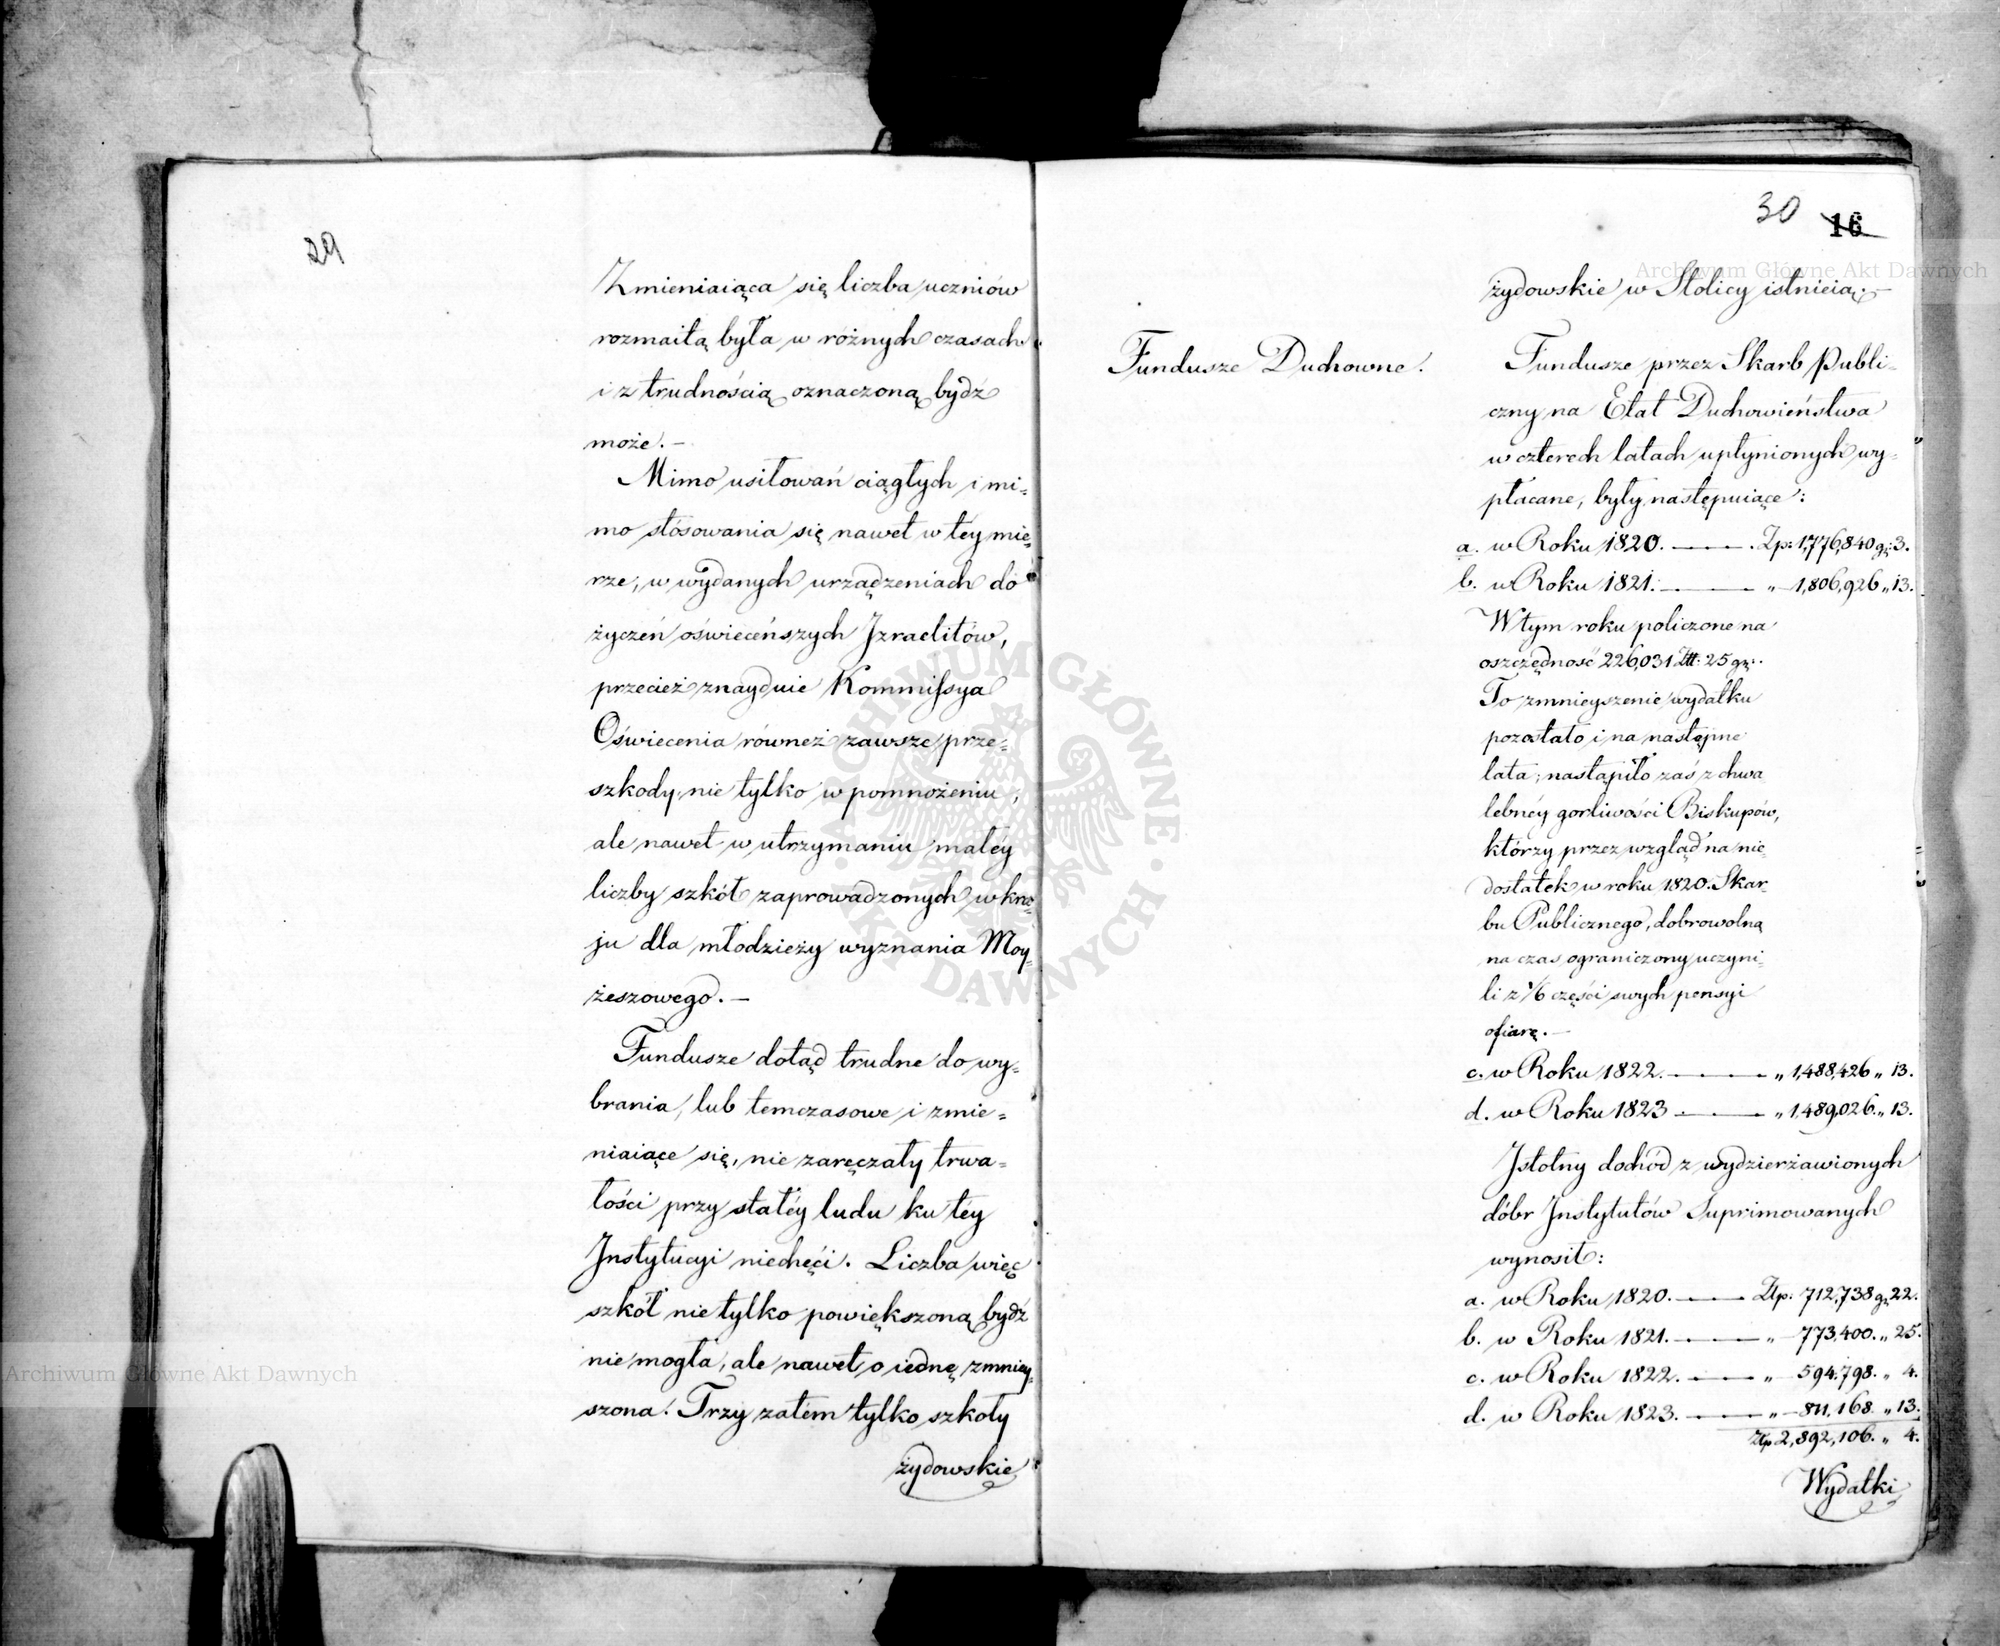 29
Zmieniaiąca się liczba uczniów
rozmaitą była w różnych czasach
i z trudnością oznaczoną bydź
może. –
Mimo usiłowań ciągłych i mi=
mo stósowania się nawet w téy mie=
rze, w wydanych urządzeniach do
życzeń oświeceńszych Izraelitów,
przecież znayduie Kommissya
Oświecenia równeż zawsze prze=
szkody nie tylko w pomnożeniu,
ale nawet w utrzymaniu małéy
liczby szkół zaprowadzonych w kra=
ju dla młodzieży wyznania Moy=
żeszowego. –
Fundusze dotąd trudne do wy=
brania, lub temczasowe i zmie=
niaiące się, nie zaręczały trwa=
łości przy stałéy ludu ku téy
Instytucyi niechęci. Liczba więc
szkół nie tylko powiększoną bydź
nie mogła, ale nawet o iednę zmniey=
szona. Trzy zatém tylko szkoły
żydowskie
30 16
żydowskie w Stolicy istnieią. –
Fundusze Duchowne.
Fundusze przez Skarb Publi=
czny na Etat Duchowieństwa
w czterech latach upłynionych wy=
płacane, były następuiące:
a. w Roku 1820. —— Zp: 1,776,840 gr: 3.
b. w Roku 1821. —— „ 1,806,926 „ 13.
W tym roku policzone na
oszczędność 226,031 Złt: 25 gr:.
To zmnieyszenie wydatku
pozostało i na następne
lata; nastąpiło zaś z chwa
lebnéy gorliwości Biskupów,
którzy przez wzgląd na nie=
dostatek w roku 1820. Skar=
bu Publicznego, dobrowolną
na czas ograniczony uczyni=
li z 1/6 części swych pensyi
ofiarę. –
c. w Roku 1822. —— „ 1,488,426 „ 13.
d. w Roku 1823 —— „ 1,489,026. „ 13.
Istotny dochód z wydzierżawionych
dóbr Instytutów Suprimowanych
wynosił:
a. w Roku 1820. —— Złp. 712,738 gr 22.
b. w Roku 1821. —— „ 773,400. „ 25.
c. w Roku 1822. —— „ 594,798. „ 4.
d. w Roku 1823. —— „ 811,168. „ 13.
Złp 2,892,106. „ 4.
Wydatki
Archiwum Główne Akt Dawnych
Archiwum Główne Akt Dawnych
ARCHIWUM GŁÓWNE AKT DAWNYCH